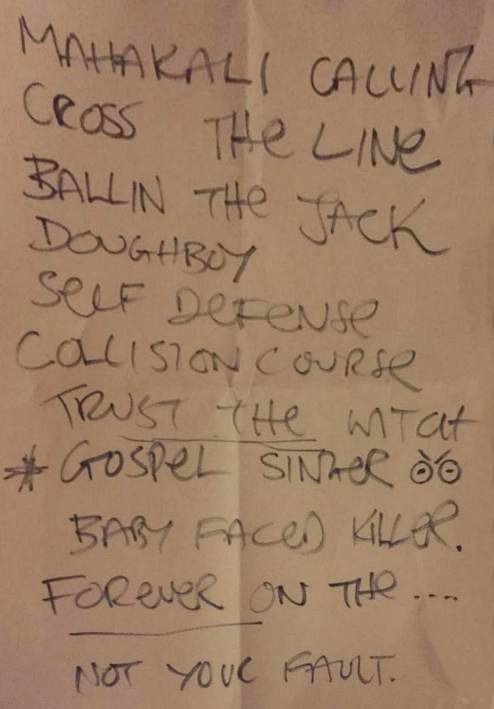 MAHAKALI CALLING
CROSS THE LINE
BALLIN THE JACK
DOUGHBOY
SELF DEFENSE
COLLISION COURSE
TRUST THE WITCH
* GOSPEL SINGER
BABY FACED KILLER.
FOREVER ON THE ....
NOT YOUR FAULT.